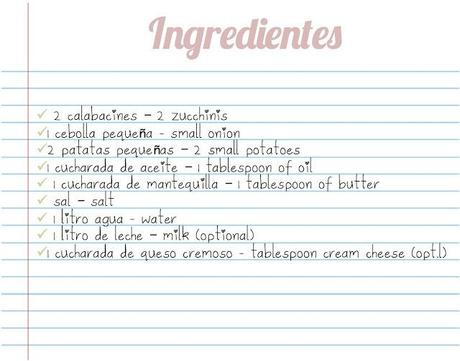 Ingredientes
✓ 2 calabacines – 2 zucchinis
✓1 cebolla pequeña - small onion
✓2 patatas pequeñas – 2 small potatoes
✓1 cucharada de aceite – 1 tablespoon of oil
✓ 1 cucharada de mantequilla – 1 tablespoon of butter
✓ sal – salt
✓ 1 litro agua - water
✓ 1 litro de leche – milk (optional)
✓1 cucharada de queso cremoso - tablespoon cream cheese (opt.l)